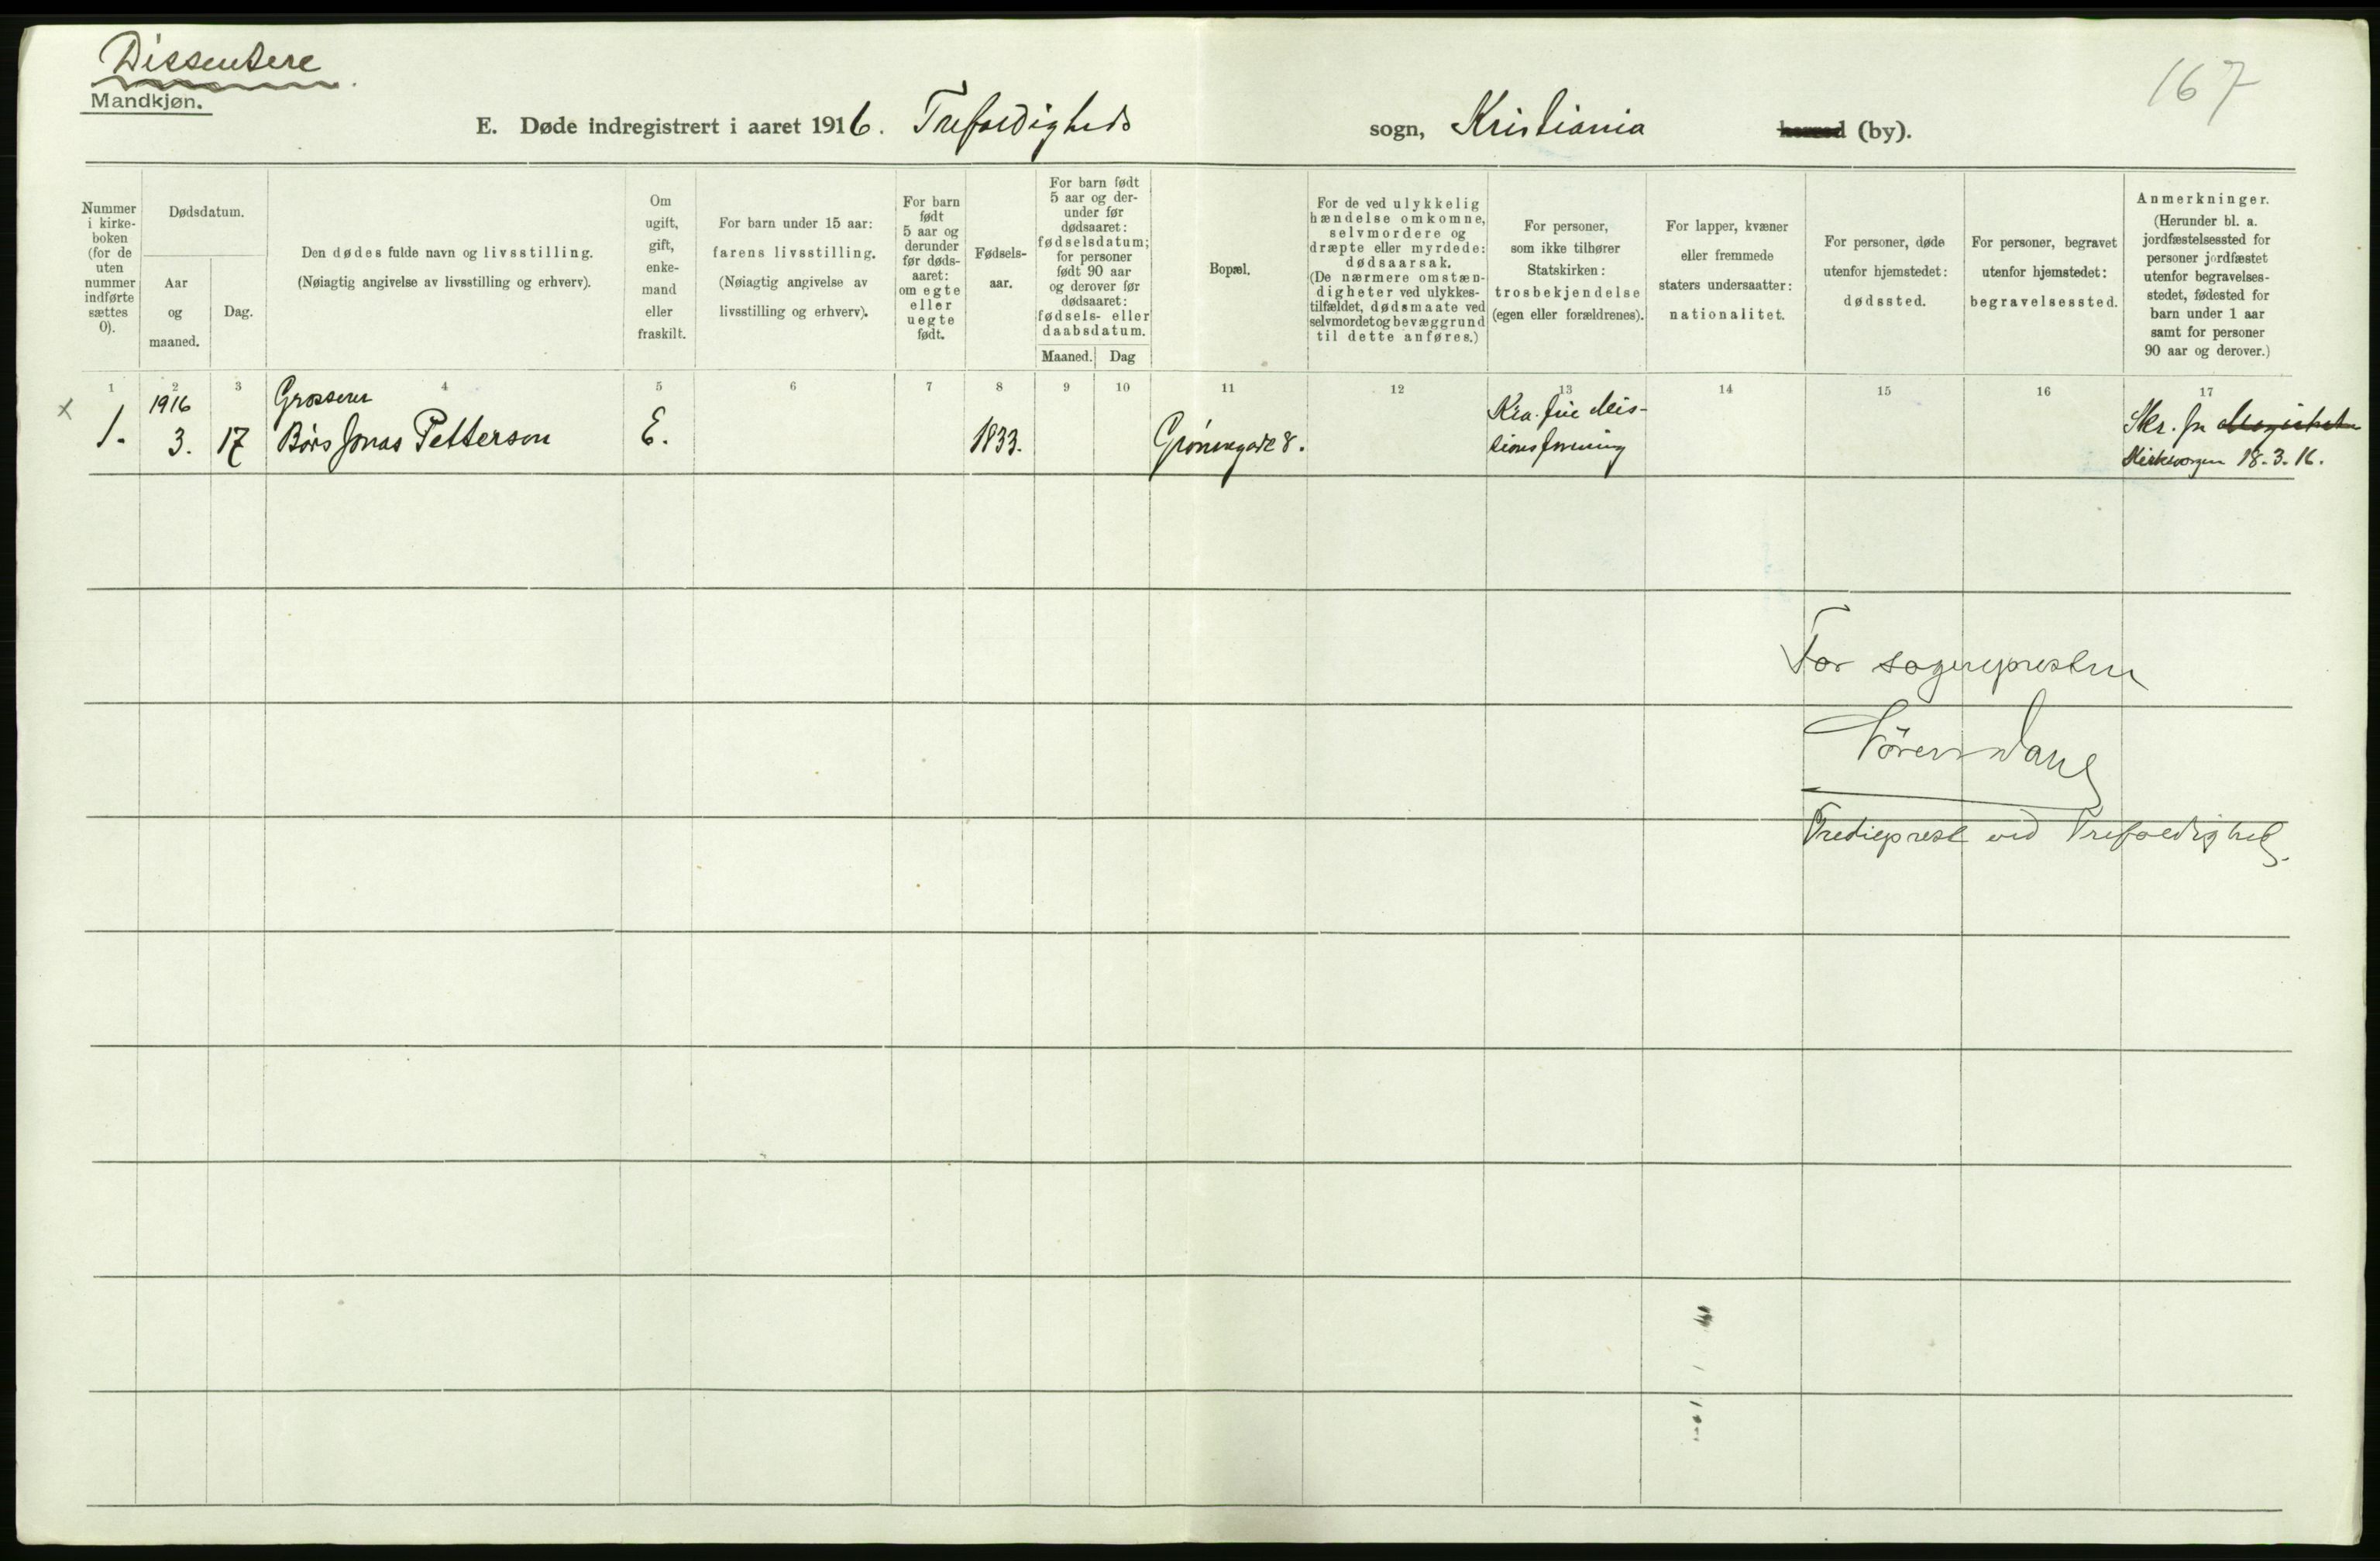 Dissentere
Mandkjøn.
167
E. Døde indregistrert i aaret 1916. Trefoldigheds sogn, Kristiania herred (by).
Nummer i kirke-boken (for de uten nummer indførte sættes 0).
Dødsdatum.
Aar og maaned.
Dag.
Den dødes fulde navn og livsstilling.
(Nøiagtig angivelse av livsstilling og erhverv).
Om ugift, gift, enke-mand eller fraskilt.
For barn under 15 aar:
farens livsstilling.
(Nøiagtig angivelse av
livsstilling og erhverv).
For barn født 5 aar og derunder før døds-aaret: om egte eller uegte født.
Fødsels-aar.
For barn født 5 aar og der-under før dødsaaret: fødselsdatum; for personer født 90 aar og derover før dødsaaret: fødsels- eller daabsdatum.
Maaned. Dag
Bopæl.
For de ved ulykkelig hændelse omkomne, selvmordere og dræpte eller myrdede: dødsaarsak. (De nærmere omstæn-digheter ved ulykkes-tilfældet, dødsmaate ved selvmordet og bevæggrund til dette anføres.)
For personer, som ikke tilhører Statskirken: trosbekjendelse (egen eller forældrenes).
For lapper, kvæner eller fremmede staters undersaatter: nationalitet.
For personer, døde utenfor hjemstedet: dødssted.
For personer, begravet utenfor hjemstedet: begravelsessted.
Anmerkninger. (Herunder bl. a. jordfæstelsessted for personer jordfæstet utenfor begravelses-stedet, fødested for barn under 1 aar samt for personer 90 aar og derover.)
1 2 3 4 5 6 7 8 9 10 11 12 13 14 15 16 17
x 1916 Grosserer Kra. frie Mis- Skr. fra
1. 3. 17 Børs Jonas Petterson E. 1833. Grønnegade 8. sionsforening 18.3.16.
For sognepresten
Sören
Tredieprest ved Trefoldighet.